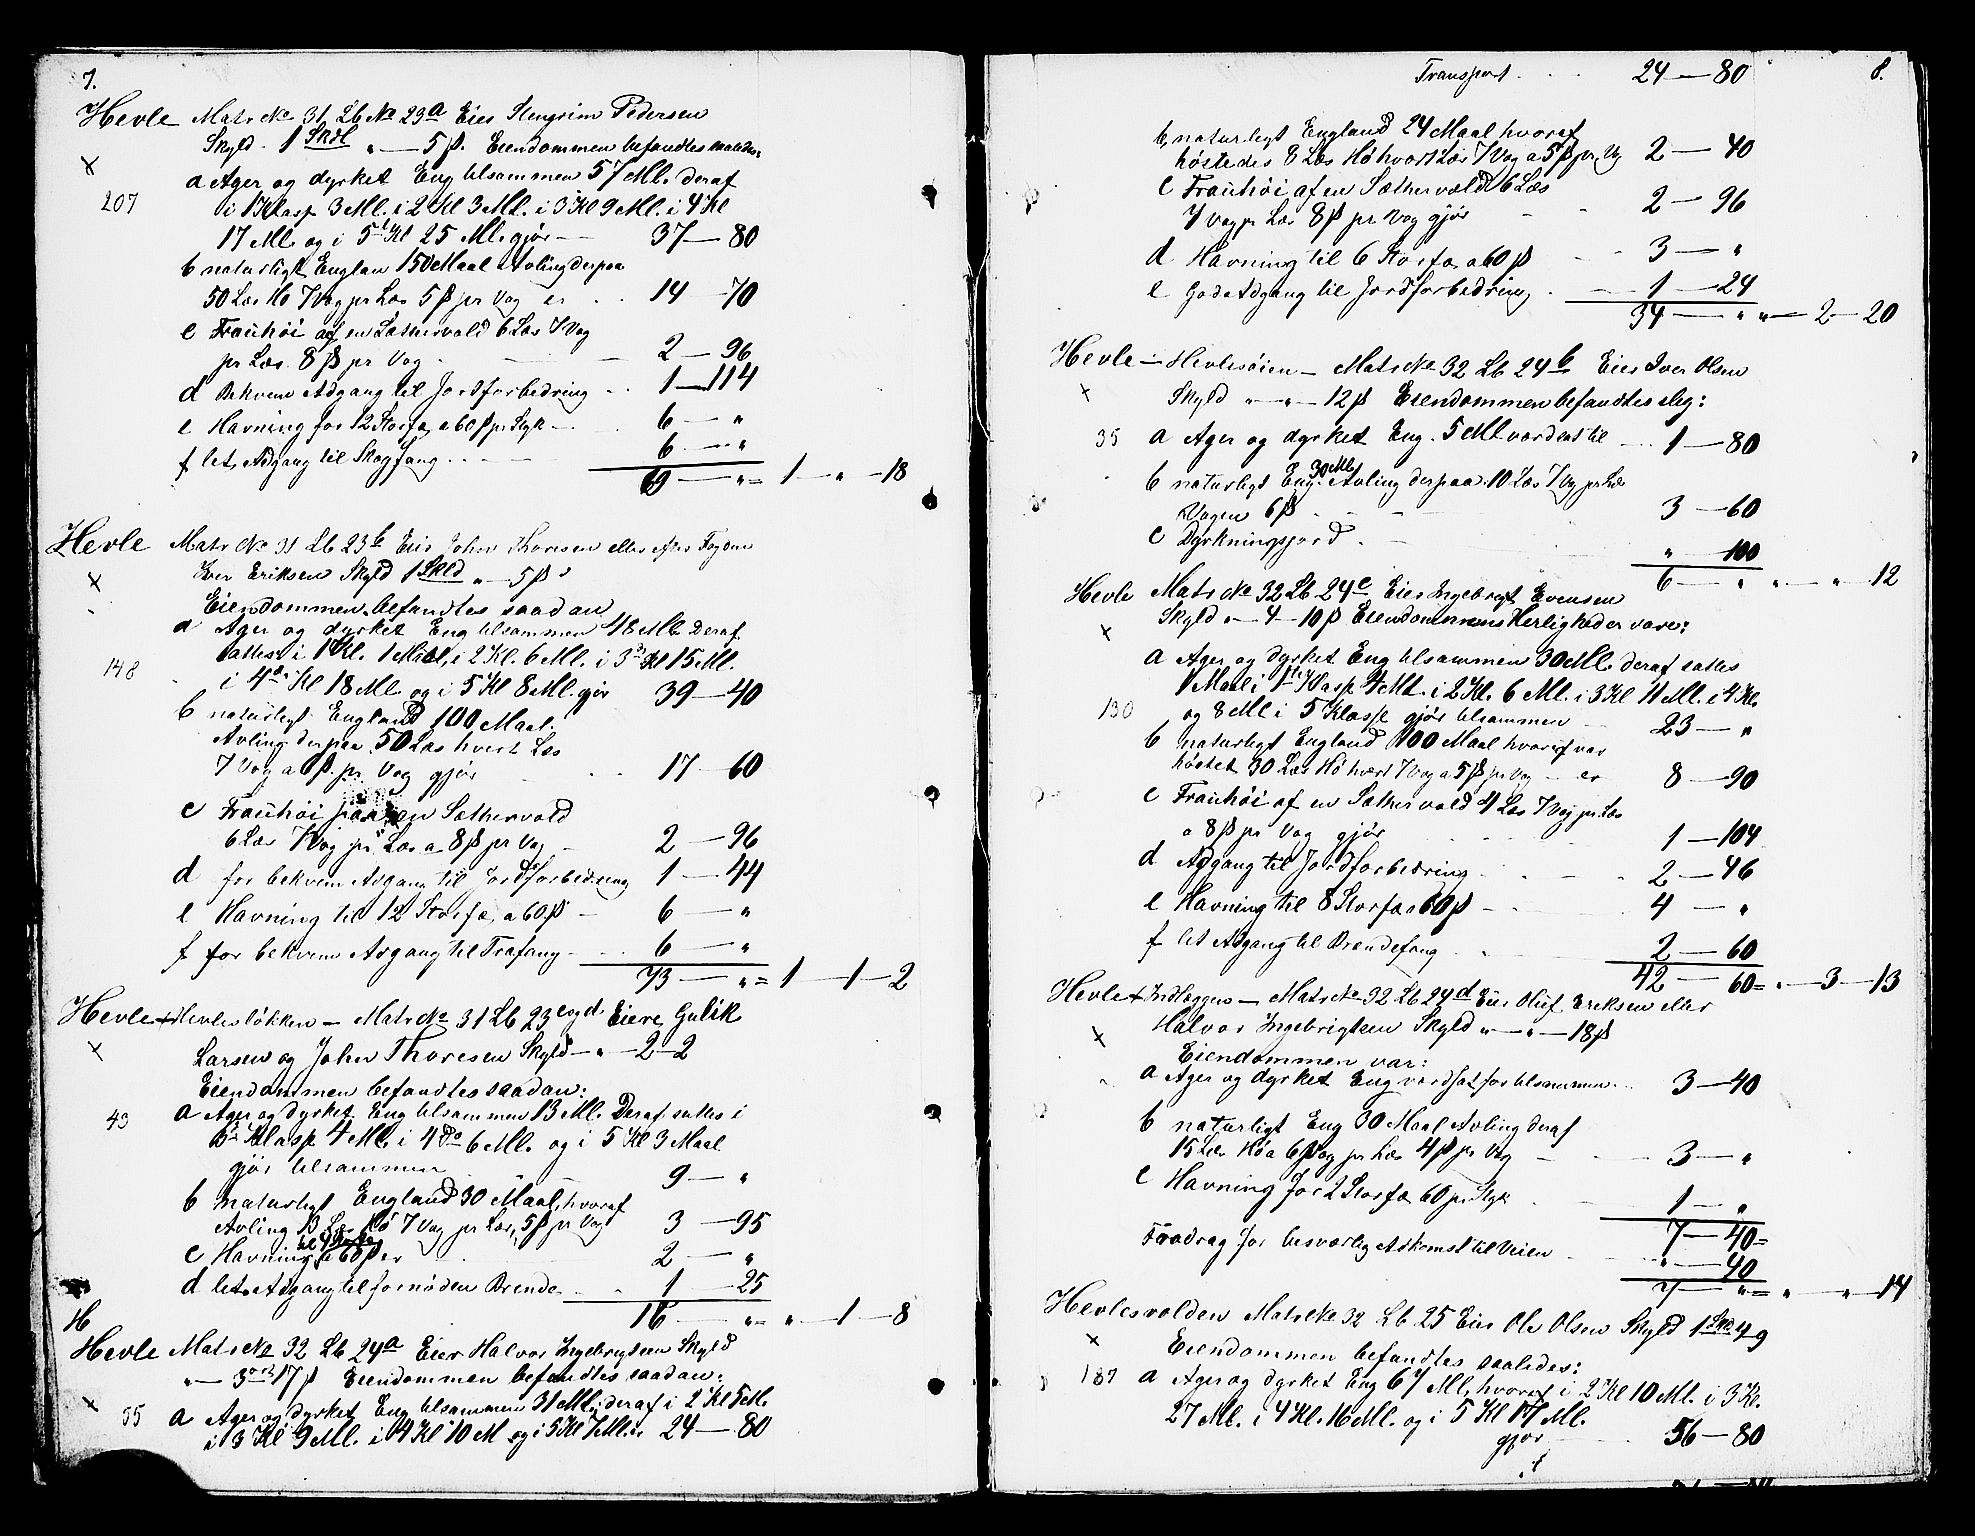 7.
Hevle Matr No 31 Lb No 23a Eier Stengrim Pedersen
Skyld. 1 Skdl " — 5 ß. Eiendommen befandtes saaledes:
x
a Ager og dyrket Eng tilsammen 57 Ml. deraf
207 i 1 Klasse 3 Ml. i 2 Kl 3 Ml. i 3 Kl 9 Ml. i 4 Kl
17 Ml. og i 5t Kl 25 Ml. gjør — 37 — 80
b naturligt Englan 150 Maal Avling derpaa
50 Læs Hø 7 Vog pr Læs 5 ß pr Vog er . . 14 — 70
c Frauhøi af en Sæthervold 6 Læs 7 Vog
pr Læs 8 ß pr Vog. — 2 — 96
d Bekvem Adgang til Jordforbedring . . 1 — 114
e Havning for 12 Storfæ a 60 ß pr Styk — 6 — "
f let Adgang til Skogfang . . . 6 — "
69 — " = 1 — " — 18
Hevle Matr No 31 Lb 23b Eier John Thoresen eller efter
Iver Eriksen Skyld 1 Skld " — 5 ß
x
Eiendommen befandtes saadan
a Ager og dyrket Eng tilsammen 48 Ml. Deraf
sattes i 1 Kl. 1 Maal, i 2 Kl. 6 Ml. i 3d Kl 15 Ml.
148 i 4de Kl 18 Ml. og i 5 Kl 8 Ml. gjør 39 — 40
b naturligt England 100 Maal.
Avling derpaa 50 Læs hvert Læs
7 Vog a 6 ß. pr. Vog gjør 17 — 60
c Frauhøi paa en Sæthervold
6 Læs 7 Vog pr Læs a 8 ß pr Vog — 2 — 96
d for bekvem Adgang til Jordforbedring 1 — 44
e Havning til 12 Storfæ a 60 ß — 6 — "
f for bekvem Adgang til Træfang — 6 — "
73 — " = 1 — 1 — 2
Hevle + Hevlesløkken — Matr No 31 Lb 23c og d Eiere Gulik
Larsen og John Thoresen Skyld — " — 2 — 2
x
Eiendommen befandtes saadan:
49 a Ager og dyrket Eng tilsammen 13 Ml. Deraf sattes i
3die Klasse 4 Ml. i 4do 6 Ml. og i 5 Kl 3 Maal
gjør tilsammen 9 — "
b naturligt England 30 Maal, hvoraf
Avling 13 Læs Hø 7 Vog pr Læs, 5 ß pr Vog 3 — 95
c Havning til 4 Storfæ a 60 ß er 2 — "
d let Adgang til fornøden Brende 1 — 25
16 — " = " — 1 — 8
H
Hevle Matr No 32 Lb 24a Eier Halvor Ingebrigtsen Skyld
" — 3 ort 17 ß Eiendommen befandtes saadan:
x 95 a Ager og dyrket Eng tilsammen 31 Ml. deraf i 2 Kl 5 Ml.
i 3 Kl 9 Ml. i 4 Kl 10 M og i 5 Kl 7 Ml. 24 — 80
8.
Transport . . . 24 — 80
b naturligt England 24 Maal hvoraf
høstedes 8 Læs Hø hvort Læs 7 Vog a 5 ß pr. Vg 2 — 40
c Frauhøi af en Sæthervold 6 Læs
7 Vog pr Læs 8 ß pr Vog gjør — 2 — 96
d Havning til 6 Storfæ a 60 ß 3 — "
e God Adgang til Jordforbedring . 1 — 24
34 — " " — 2 — 20
Hevle — Hevlesøien — Matr No 32 Lb 24b Eier Iver Olsen
x Skyld " — " — 12 ß Eiendommen befandtes slig:
35 a Ager og dyrket Eng. 5 Ml værdsat til 1 — 80
b naturligt Eng. 30 Ml. Avling derpaa 10 Læs 7 Vog pr Læs
Vogen 6 ß . — 3 — 60
c Dyrkningsjord . " — 100
6 — " " — " — 12
Hevle Matr No 32 Lb 24c Eier Ingebrigt Evensen
Skyld " — 4 — 10 ß Eiendommens Herligheder vare:
x
a Ager og dyrket Eng tilsammen 30 Ml. deraf sattes
1 Maal i 1ste Klasse 4 Ml. i 2 Kl. 6 Ml. i 3 Kl 11 Ml. i 4 Kl.
130 og 8 Ml i 5 Klasse gjør tilsammen 23 — "
b naturligt England 100 Maal hvoraf var
høstet 30 Læs Hø hvert 7 Vog a 5 ß pr Vog — er 8 — 90
c Frauhøi af en Sæthervold 4 Læs 7 Vog pr. Læs
a 8 ß pr Vog gjør 1 — 104
d Adgang til Jordforbedring 2 — 46
e Havning til 8 Storfæ a 60 ß — 4 — "
f let Adgang til Brendefang 2 — 60
42 — 60 = " — 3 — 13
Hevle + Indlæggen — Matr No 32 Lb 24d Eier Oluf Eriksen eller
Halvor Ingebrigtsen Skyld " — " — 18 ß
x
Eiendommen var:
a Ager og dyrket Eng værdsat for tilsammen 3 — 40
b naturligt Eng 30 Maal Avling deraf
15 Læs Hø a 6 Vog pr Læs 4 ß pr Vog — 3 — "
c Havning for 2 Storfæ 60 pr Styk 1 — "
7 — 40 =
Fradrag for besværlig Adkomst til Veien " — 40
7 — " = " — " — 14
Hevlesvolden Matr No 32 Lb 25 Eier Ole Olsen Skyld 1 Skd 4 9
x
Eiendommen befandtes saaledes:
187 a Ager og dyrket Eng 67 Ml, hvoraf i 2 Kl 10 Ml. i 3 Kl.
27 Ml. i 4 Kl. 16 Ml. og i 5 Kl 17 Ml.
gjør 56 — 80